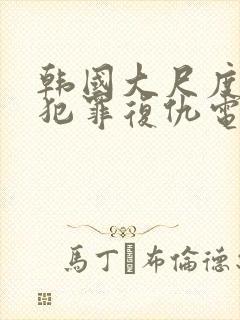 韩國大尺度
犯罪復仇電
馬丁·布倫德